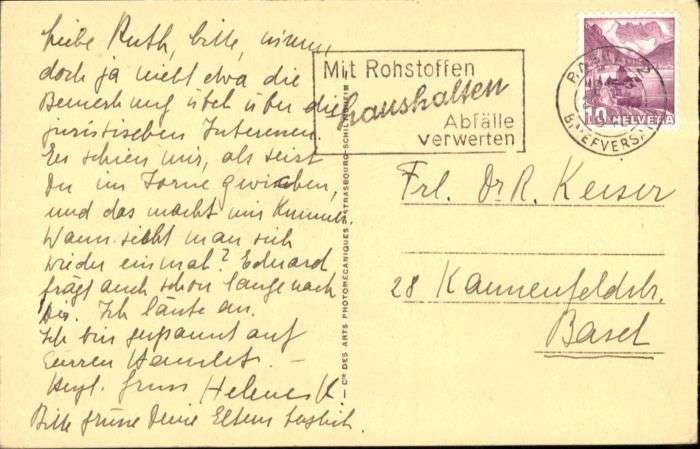 Liebe Ruth, bitte, nimm
doch ja nicht etwa die
Bemerkung übel über die
juristischen Interessen.
Es schien mir, als seist
Du im Zorne gewichen,
und das macht mir Kummer.
Wann sieht man sich
wieder einmal? Eduard
frägt auch schon lange nach
Dir. Ich läute an.
Ich bin gespannt auf
Euren Hamlet. —
Herzl. Gruss Helene K.
Bitte grüsse Deine Eltern
Mit Rohstoffen
haushalten
Abfälle
verwerten
BRIEFVERSAND
10
HELVETIA
Frl. Dr. R. Keiser
28 Kannenfeldstr.
Basel
— Cie DES ARTS PHOTOMÉCANIQUES STRASBOURG-SCHILTIGHEIM